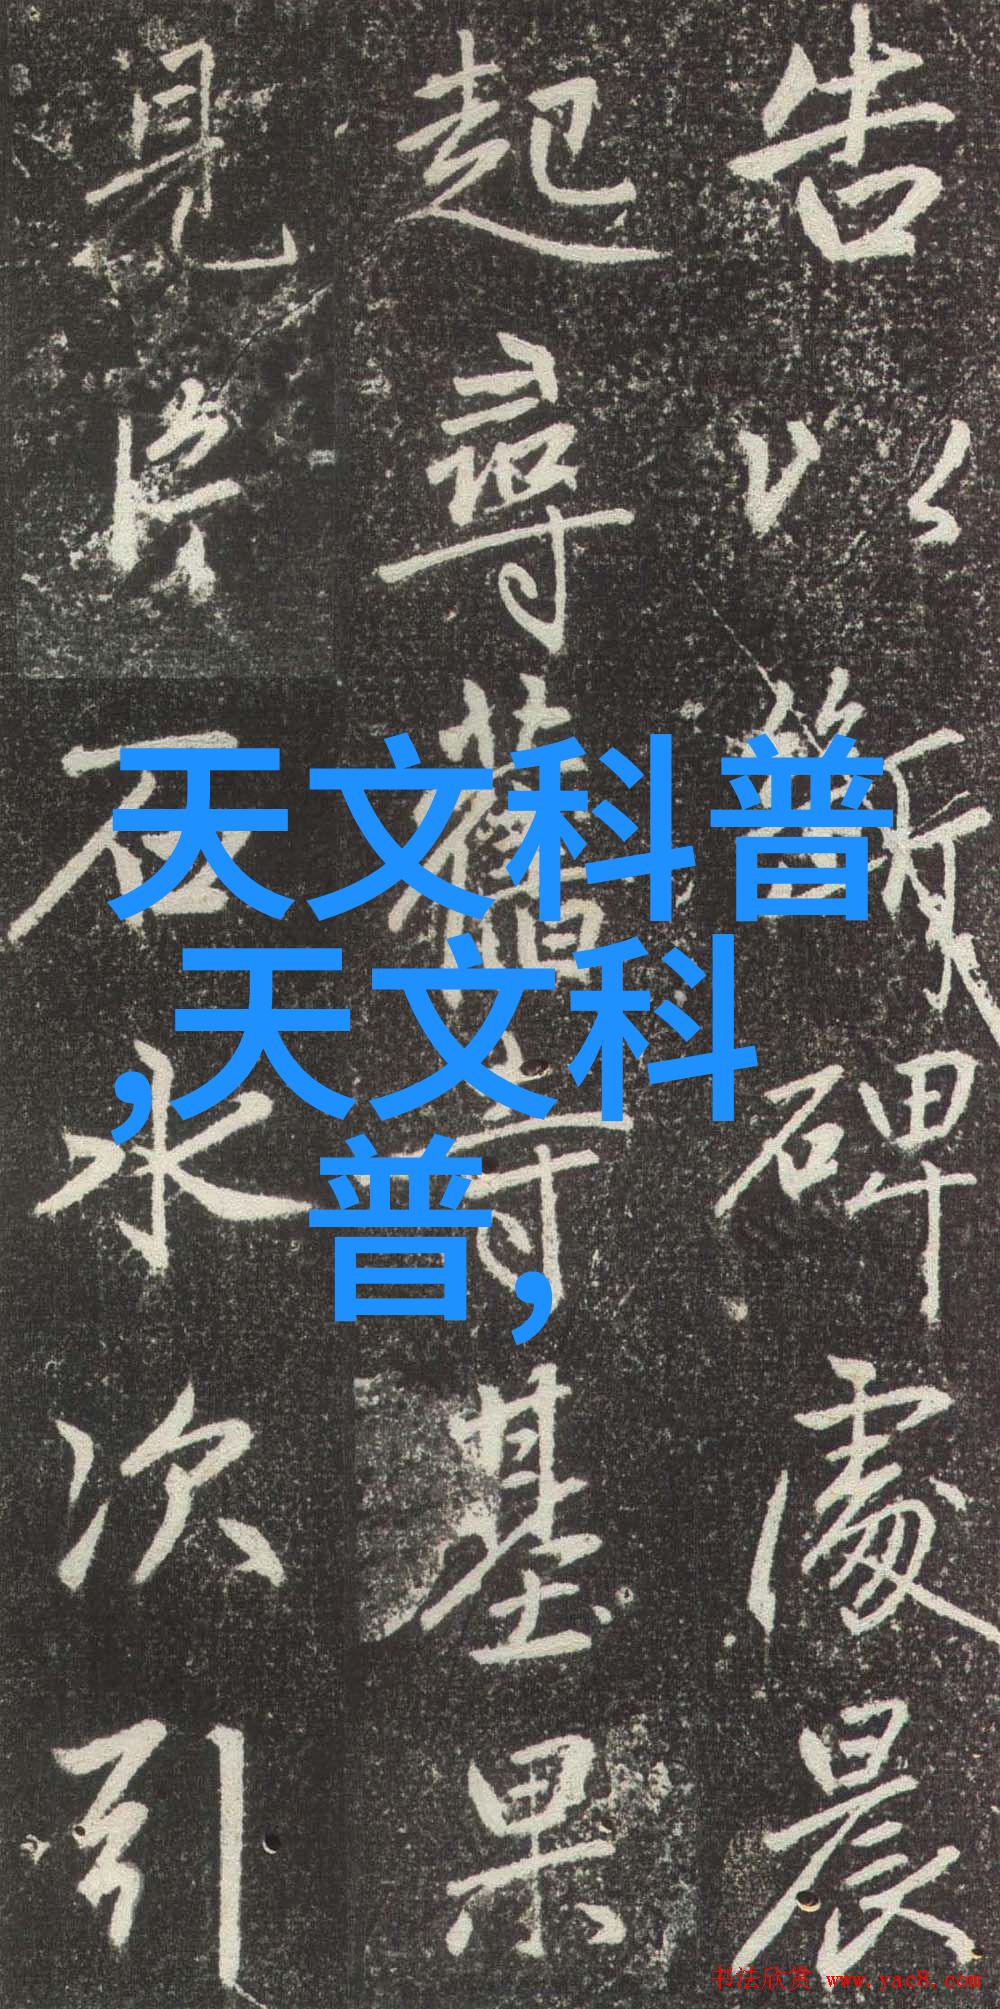 告以斷碑處晨
起尋舊寺基果
見片石水次引
天文科普
,天文科
普,
书法欣赏 www.yac8.com